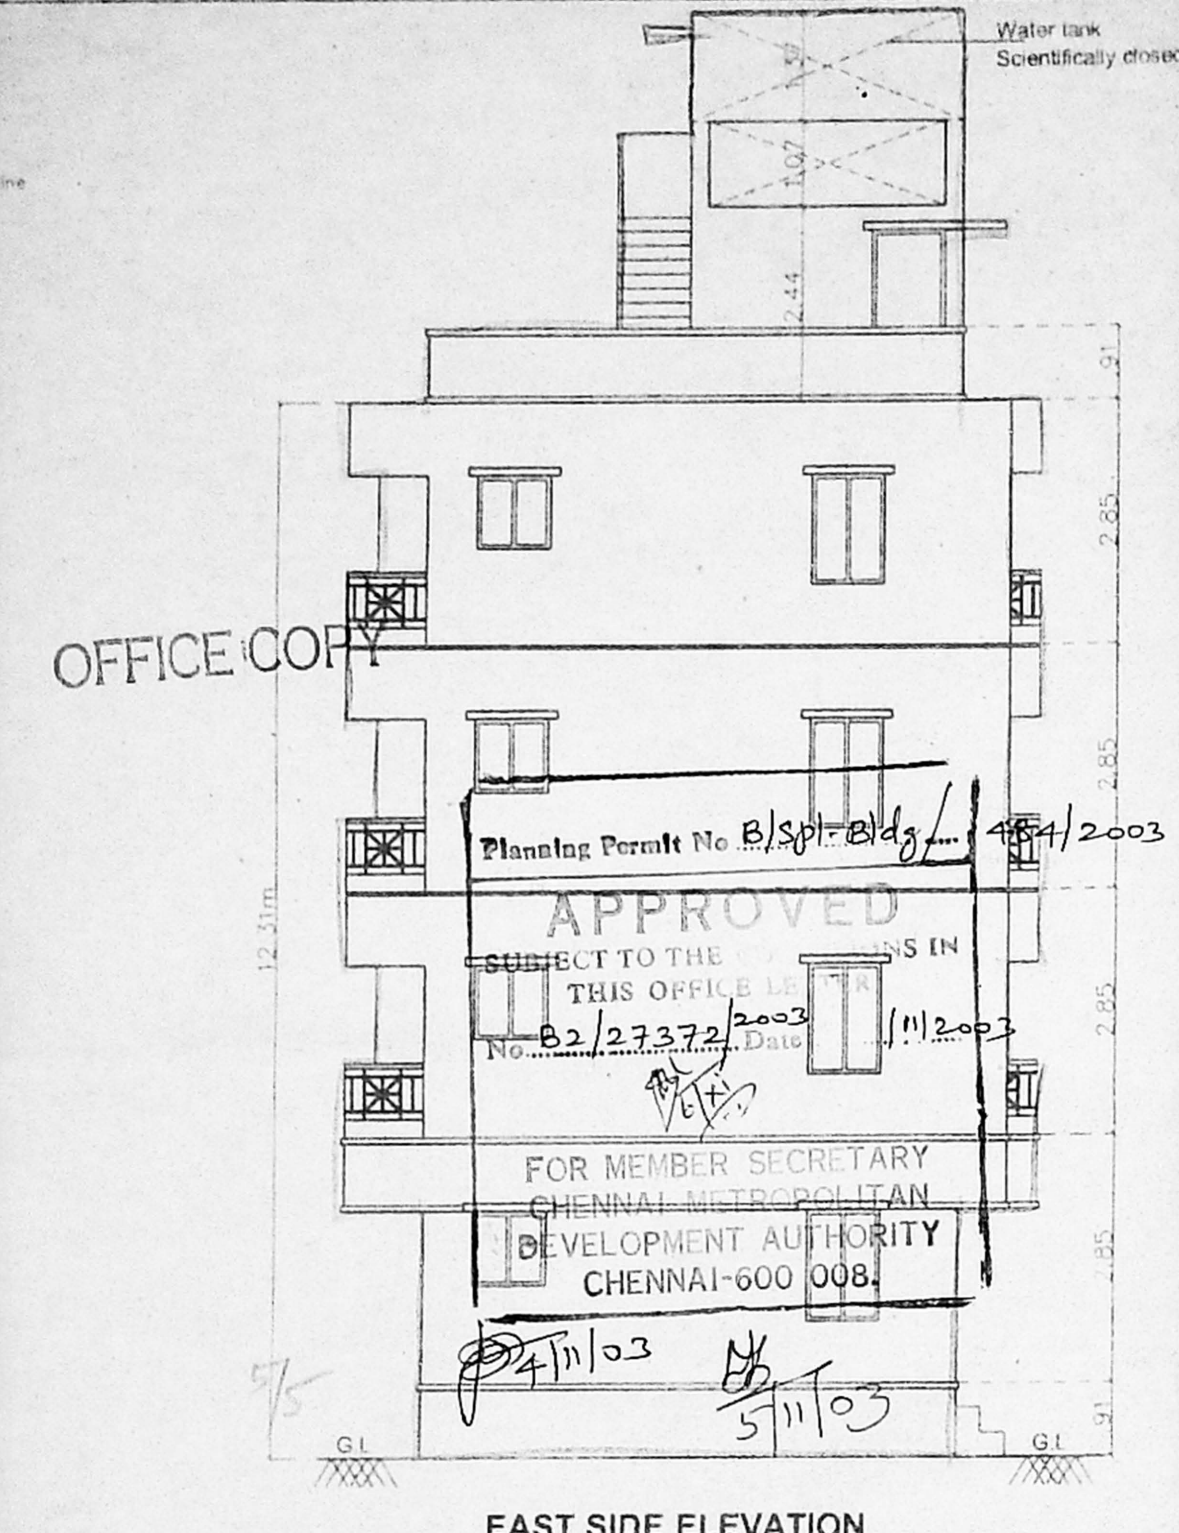 Water tank
Scientifically closed
ine
1.07
2.44
.91
2.85
OFFICE COPY
2.85
Planning Permit No B/Spl-Bldg/ 484/2003
APPROVED
12.31m
SUBJECT TO THE IN
THIS OFFICE
2.85
No. B2/27372/2003 Date /11/2003
FOR MEMBER SECRETARY
CHENNAI METROPOLITAN
DEVELOPMENT AUTHORITY
2.85
CHENNAI-600 008.
4/11/03
5/11/03
5/5
.91
G.L
G.L
EAST SIDE ELEVATION